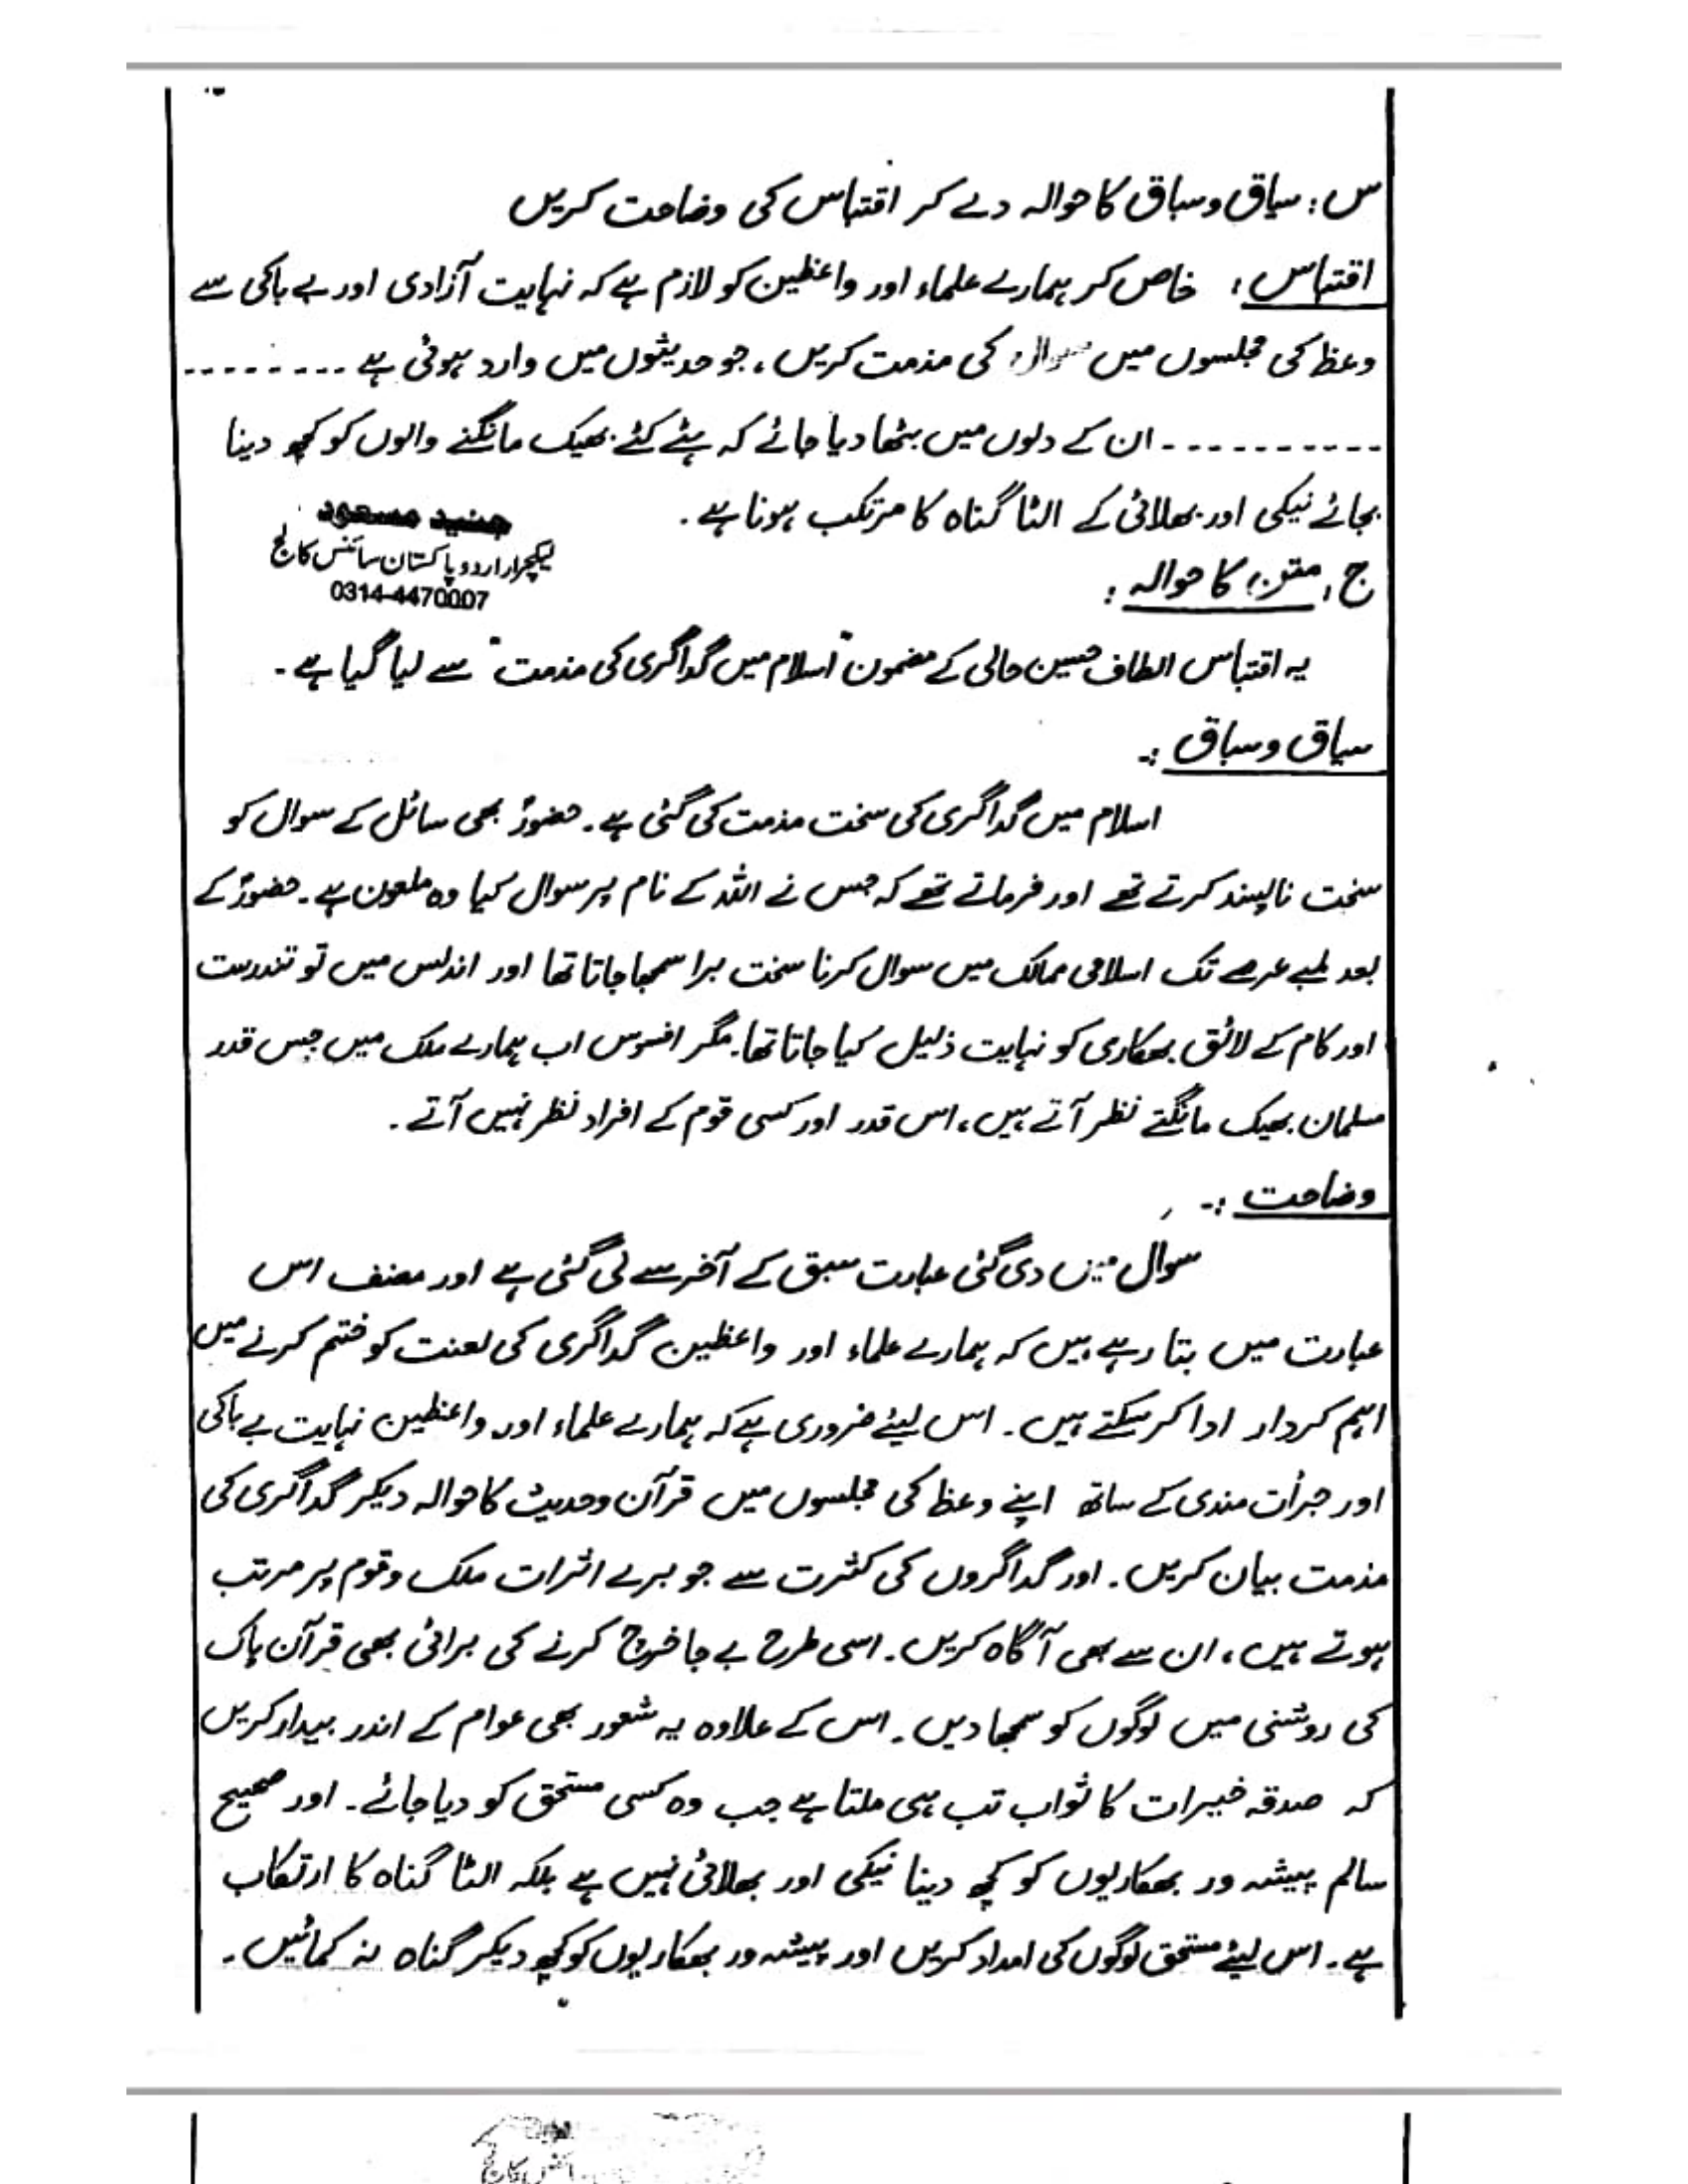 س: سیاق و سباق کا حوالہ دے کر اقتباس کی وضاحت کریں
اقتباس: خاص کر ہمارے علماء اور واعظین کو لازم ہے کہ نہایت آزادی اور بے باکی سے
وعظ کی مجلسوں میں سوال کی مذمت کریں، جو حدیثوں میں وارد ہوئی ہے --------
---------- ان کے دلوں میں بٹھا دیا جائے کہ ہٹے کٹے بھیک مانگنے والوں کو کچھ دینا
بجائے نیکی اور بھلائی کے الٹا گناہ کا مرتکب ہونا ہے۔
جنید مسعود
لیکچرار اردو پاکستان سائنس کالج
0314-4470007
ج: متن کا حوالہ:
یہ اقتباس الطاف حسین حالی کے مضمون "اسلام میں گداگری کی مذمت" سے لیا گیا ہے۔
سیاق و سباق :-
اسلام میں گداگری کی سخت مذمت کی گئی ہے۔ حضورؐ بھی سائل کے سوال کو
سخت ناپسند کرتے تھے اور فرماتے تھے کہ جس نے اللہ کے نام پر سوال کیا وہ ملعون ہے۔ حضورؐ کے
بعد لمبے عرصے تک اسلامی ممالک میں سوال کرنا سخت برا سمجھا جاتا تھا اور اندلس میں تو تندرست
اور کام کے لائق بھکاری کو نہایت ذلیل کیا جاتا تھا۔ مگر افسوس اب ہمارے ملک میں جس قدر
مسلمان بھیک مانگتے نظر آتے ہیں، اس قدر اور کسی قوم کے افراد نظر نہیں آتے۔
وضاحت :-
سوال میں دی گئی عبارت سبق کے آخر سے لی گئی ہے اور مصنف اس
عبارت میں بتا رہے ہیں کہ ہمارے علماء اور واعظین گداگری کی لعنت کو ختم کرنے میں
اہم کردار ادا کر سکتے ہیں۔ اس لیئے ضروری ہے کہ ہمارے علماء اور واعظین نہایت بے باکی
اور جرأت مندی کے ساتھ اپنے وعظ کی مجلسوں میں قرآن و حدیث کا حوالہ دیکر گداگری کی
مذمت بیان کریں۔ اور گداگروں کی کثرت سے جو برے اثرات ملک و قوم پر مرتب
ہوتے ہیں، ان سے بھی آگاہ کریں۔ اسی طرح بے جا خرچ کرنے کی برائی بھی قرآن پاک
کی روشنی میں لوگوں کو سمجھا دیں۔ اس کے علاوہ یہ شعور بھی عوام کے اندر بیدار کریں
کہ صدقہ خیرات کا ثواب تب ہی ملتا ہے جب وہ کسی مستحق کو دیا جائے۔ اور صحیح
سالم پیشہ ور بھکاریوں کو کچھ دینا نیکی اور بھلائی نہیں ہے بلکہ الٹا گناہ کا ارتکاب
ہے۔ اس لیئے مستحق لوگوں کی امداد کریں اور پیشہ ور بھکاریوں کو کچھ دیکر گناہ نہ کمائیں۔